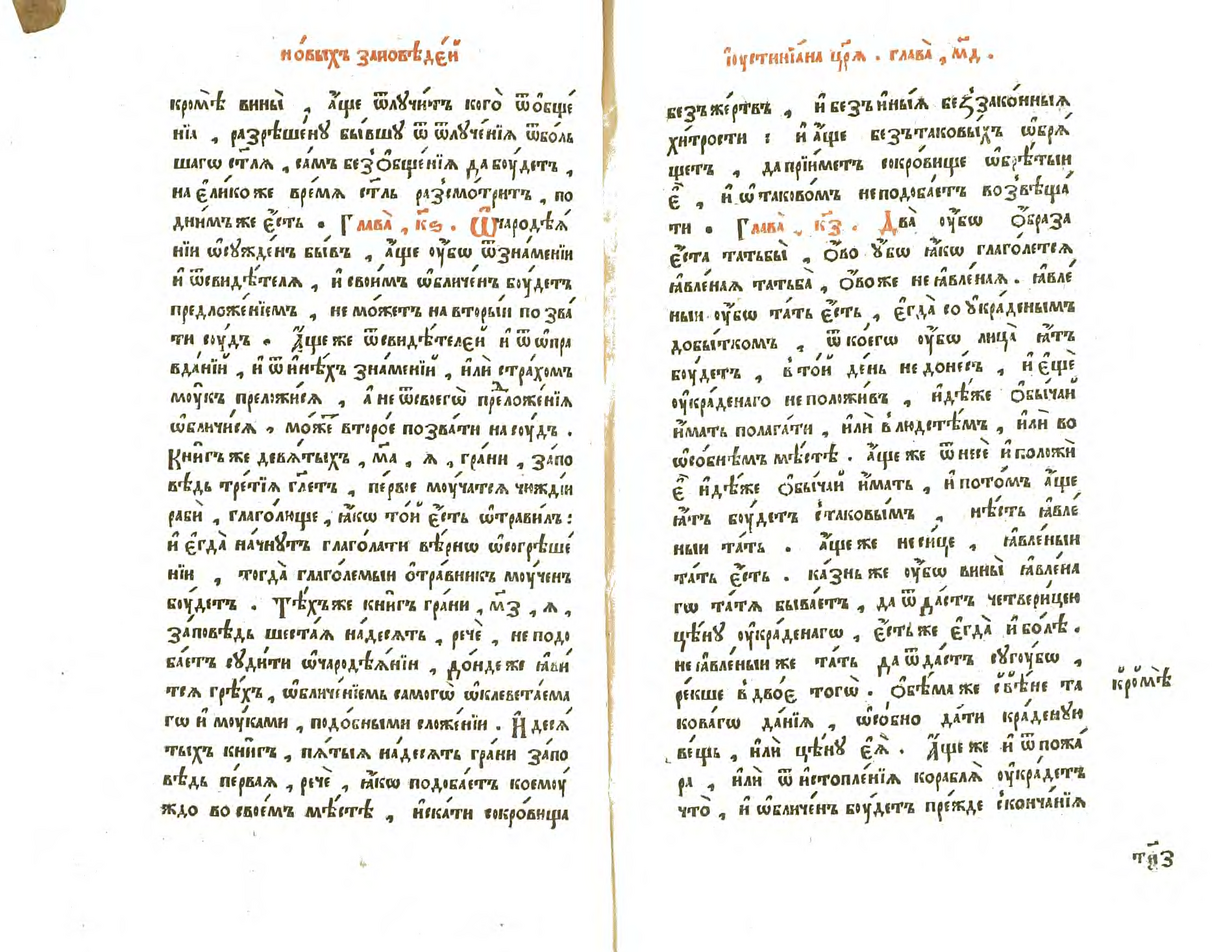 но́выхъ за́повѣде́й
кромѣ̀ вины̀ , а҆́ще ѿлꙋчи́тъ кого̀ ѿѻбще́
нїѧ , разрѣше́нꙋ бы́вшꙋ ѿ ѿлꙋче́нїѧ ѿбо́ль
шагѡ ст҃лѧ , са́мъ без̾ѻбще́нїѧ да бꙋ́детъ ,
на е҆ли́коже вре́мѧ ст҃ль раз̾смо́тритъ , по
дни́мъже є҆́сть . Глава̀ , к҃ѕ . Ѿчародѣѧ́
нїи ѡ҆сꙋжде́нъ бы́въ , а҆́ще ᲂу҆́бѡ ѿзна́менїи
и҆ ѿсвидѣ́телѧ , и҆ свои́мъ ѡ҆бличе́нъ бꙋ́детъ
предложе́нїемъ , не мо́жетъ на вторы́и по зва́
ти сꙋ́дъ . А҆́ще же ѿсвидѣ́телей и҆ ѿ ѡ҆пра
вда́нїй , и҆ ѿ и҆нѣ́хъ зна́менїй , и҆лѝ стра́хомъ
мꙋ́къ преложи́сѧ , а҆ не ѿсвоегѡ̀ предложе́нїѧ
ѡ҆бличи́сѧ , мо́же второ́е позва́ти на сꙋ́дъ .
Кни́гъ же девѧ́тыхъ , м҃а , ѧ , гра́ни , за́по
вѣдь тре́тїѧ гл҃етъ , пе́рвїе мꙋ́чатсѧ чюжді́и
рабѝ , глаго́люще , ꙗ҆́кѡ то́й є҆́сть ѡ҆трави́лъ :
и҆ є҆гда̀ начнꙋ́тъ глаго́лати вѣ́рнѡ ѡ҆согрѣше́
нїи , тогда̀ глаго́лемыи ѻ҆тра́вникъ мꙋ́ченъ
бꙋ́детъ . Тѣ́хъже кни́гъ гра́ни , м҃з , ѧ ,
за́повѣдь шеста́ѧ на́десѧть , речѐ , не подо
ба́етъ сꙋди́ти ѡ҆чародѣѧ́нїи , до́ндеже ꙗ҆ви́
тсѧ грѣ́хъ , ѡ҆бличе́нїемь самогѡ̀ ѡ҆клевета́ема
гѡ и҆ мꙋ́ками , подо́бными сложе́нїи . И҆ десѧ́
тыхъ кни́гъ , пѧ́тыѧ на́десѧть гра́ни за́по
вѣдь пе́рваѧ , речѐ , ꙗ҆́кѡ подоба́етъ коемꙋ́
ждо во свое́мъ мѣ́стѣ , и҆ска́ти сокро́вища
і҆ꙋстинїа́на цр҃ѧ . глава̀ , м҃д .
безъже́ртвъ , и҆ безъины́ѧ без̾зако́нныѧ
хи́трости : и҆ а҆́ще безътаковы́хъ ѡ҆брѧ́
щетъ , да прїи́метъ сокро́вище ѡ҆брѣ́тыи
є҆̀ , и҆ ѡ҆ таково́мъ не подоба́етъ воз̾вѣща́
ти . Глава̀ , к҃з . Два̀ ᲂу҆́бѡ ѻ҆́браза
є҆ста̀ татьбы̀ , ѻ҆́во ᲂу҆́бѡ ꙗ҆́кѡ глаго́летсѧ
ꙗ҆вле́наѧ татьба̀ , ѻ҆́во же не ꙗ҆вле́наѧ . ꙗ҆вле́
ныи ᲂу҆́бѡ та́ть є҆́сть , є҆гда̀ со ᲂу҆кра́денымъ
добы́ткомъ , ѿ коегѡ ᲂу҆́бѡ лица̀ ꙗ҆́тъ
бꙋ́детъ , в то́й де́нь не доне́съ , и҆ є҆щѐ
ᲂу҆кра́денаго не положи́въ , и҆дѣ́же ѻ҆бы́чай
и҆́мать полага́ти , и҆лѝ в лю́дстѣмъ , и҆лѝ во
ѡ҆со́бнѣмъ мѣ́стѣ . а҆́ще же ѿнесѐ и҆ положѝ
є҆̀ и҆дѣ́же ѻ҆бы́чай и҆́мать , и҆ пото́мъ а҆́ще
ꙗ҆́тъ бꙋ́детъ с таковы́мъ , нѣ́сть ꙗ҆вле́
ныи та́ть . а҆́ще же не си́це , ꙗ҆вле́ныи
та́ть є҆́сть . ка́знь же ᲂу҆́бѡ вины̀ ꙗ҆вле́на
гѡ та́тѧ быва́етъ , да ѿда́стъ четвери́цею
цѣ́нꙋ ᲂу҆кра́денагѡ , є҆́сть же є҆гда̀ и҆ бо́лѣ .
не ꙗ҆вле́ныи же та́ть да ѿда́стъ сꙋгꙋ́бѡ ,
ре́кше в дво́е тогѡ̀ . Ѻ҆бѣ́ма же є҆в̾ѣ́не та
кова́гѡ да́нїѧ , ѡ҆со́бно да́ти кра́денꙋю
ве́щь , и҆лѝ цѣ́нꙋ є҆ѧ̀ . А҆́ще же и҆ ѿ пожа́
ра , и҆лѝ ѿ и҆стопле́нїѧ корабла̀ ᲂу҆кра́детъ
что̀ , и҆ ѡ҆бличе́нъ бꙋ́детъ пре́жде сконча́нїѧ
кромѣ̀